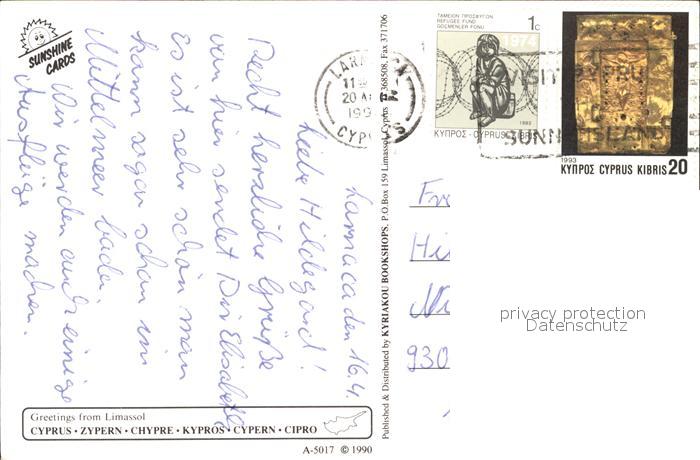 SUNSHINE
CARDS
Larnaca den 16.4.
Liebe Hildegard!
Recht herzliche Grüße
von hier sendet Dir Elisabeth
Es ist sehr schön man
kann sogar schon im
Mittelmeer baden
Wir werden auch einige
Ausflüge machen.
Greetings from Limassol
CYPRUS • ZYPERN • CHYPRE • KYPROS • CYPERN • CIPRO
A-5017 © 1990
Published & Distributed by KYRIAKOU BOOKSHOPS, P.O.Box 159 Limassol Cyprus 368508, Fax 371706
LARNACA
11
20 A
199
CYPRUS
ΤΑΜΕΙΟΝ ΠΡΟΣΦΥΓΩΝ
REFUGEE FUND
GÖÇMENLER FONU
1c
1974
ΚΥΠΡΟΣ - CYPRUS KIBRIS
VISIT CYPRUS
SUNN ISLAND
1993
ΚΥΠΡΟΣ CYPRUS KIBRIS 20
Fr
Hi
930
privacy protection
Datenschutz